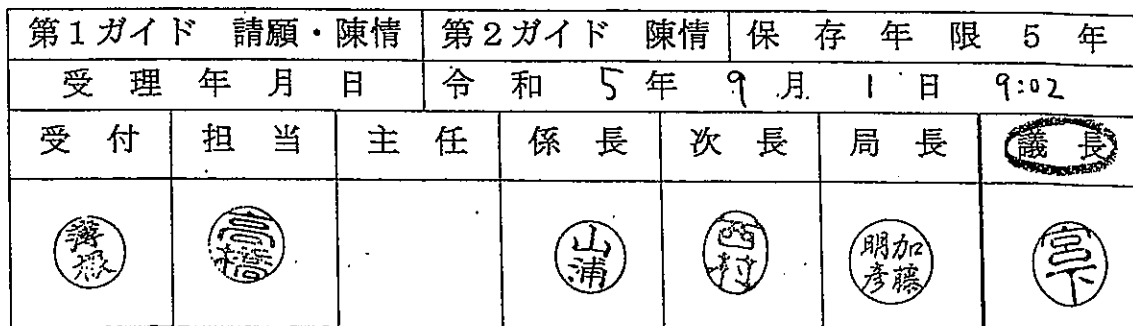 第1ガイド 請願・陳情 第2ガイド 陳情 保存年限 5年
受理年月日 令和5年9月1日 9:02
受付 担当 主任 係長 次長 局長 議長
高橋 山浦 西村 加藤明彦 宮下